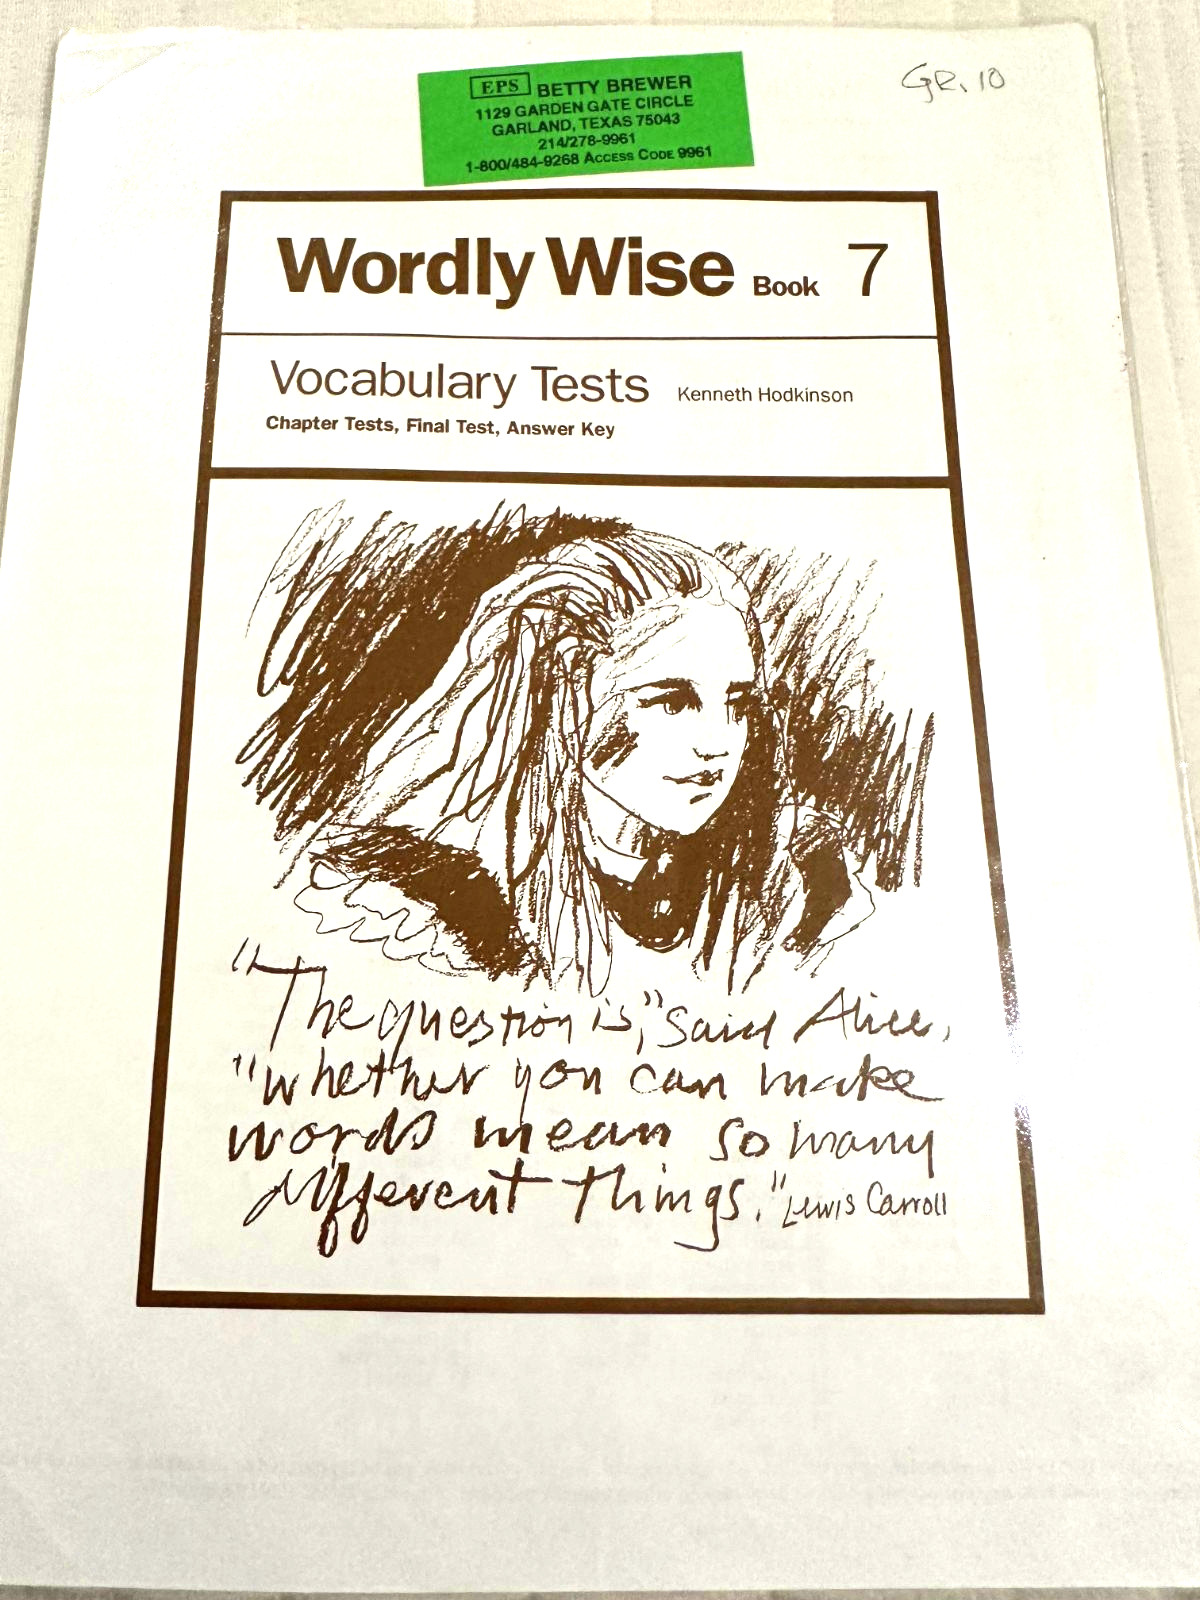 EPS BETTY BREWER
1129 GARDEN GATE CIRCLE
GARLAND, TEXAS 75043
214/278-9961
1-800/484-9268 ACCESS CODE 9961
GR. 10
Wordly Wise Book 7
Vocabulary Tests Kenneth Hodkinson
Chapter Tests, Final Test, Answer Key
"The question is," said Alice,
"whether you can make
words mean so many
different things." Lewis Carroll